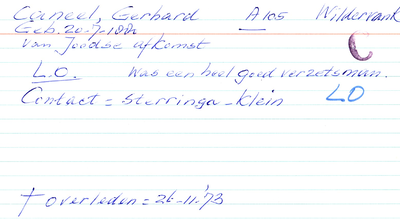 Caneel, Gerhard A105 Wildervank
Geb. 20-7-
van Joodse afkomst
L.O. Was een heel goed verzetsman.
Contact = Sterringa-Klein LO
† overleden = 26-11-'73